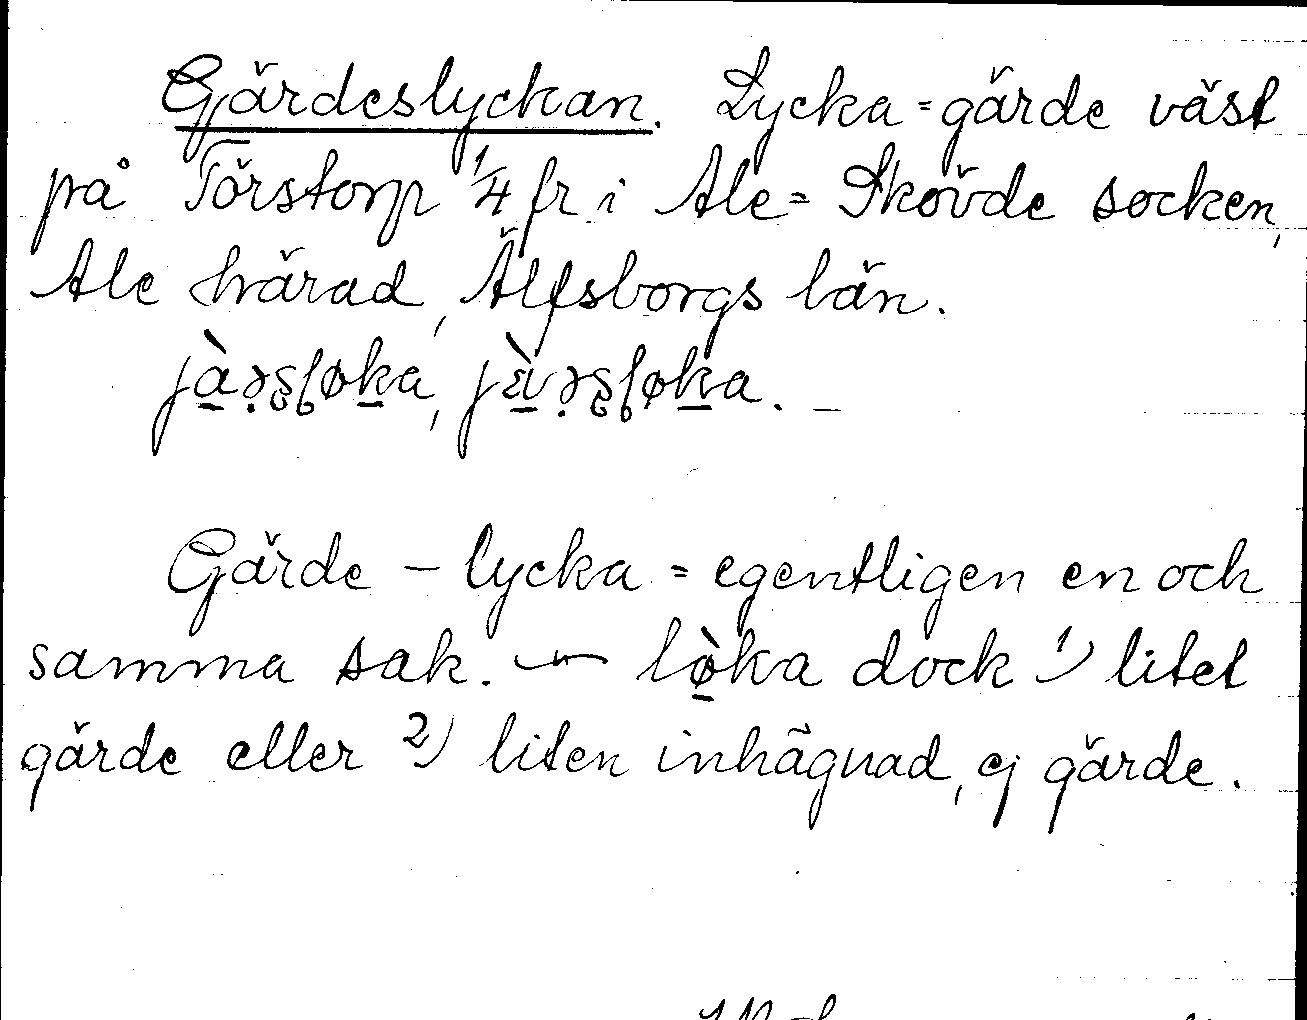 Gjärdeslyckan. Lycka = gärde väst
på Törstorp 1/4 fr. i Ale = Skövde socken,
Ale härad, Älfsborgs län.
Gärde – lycka = egentligen en och
samma sak. — lø̀ka dock 1) litet
gärde eller 2) liten inhägnad, ej gärde.